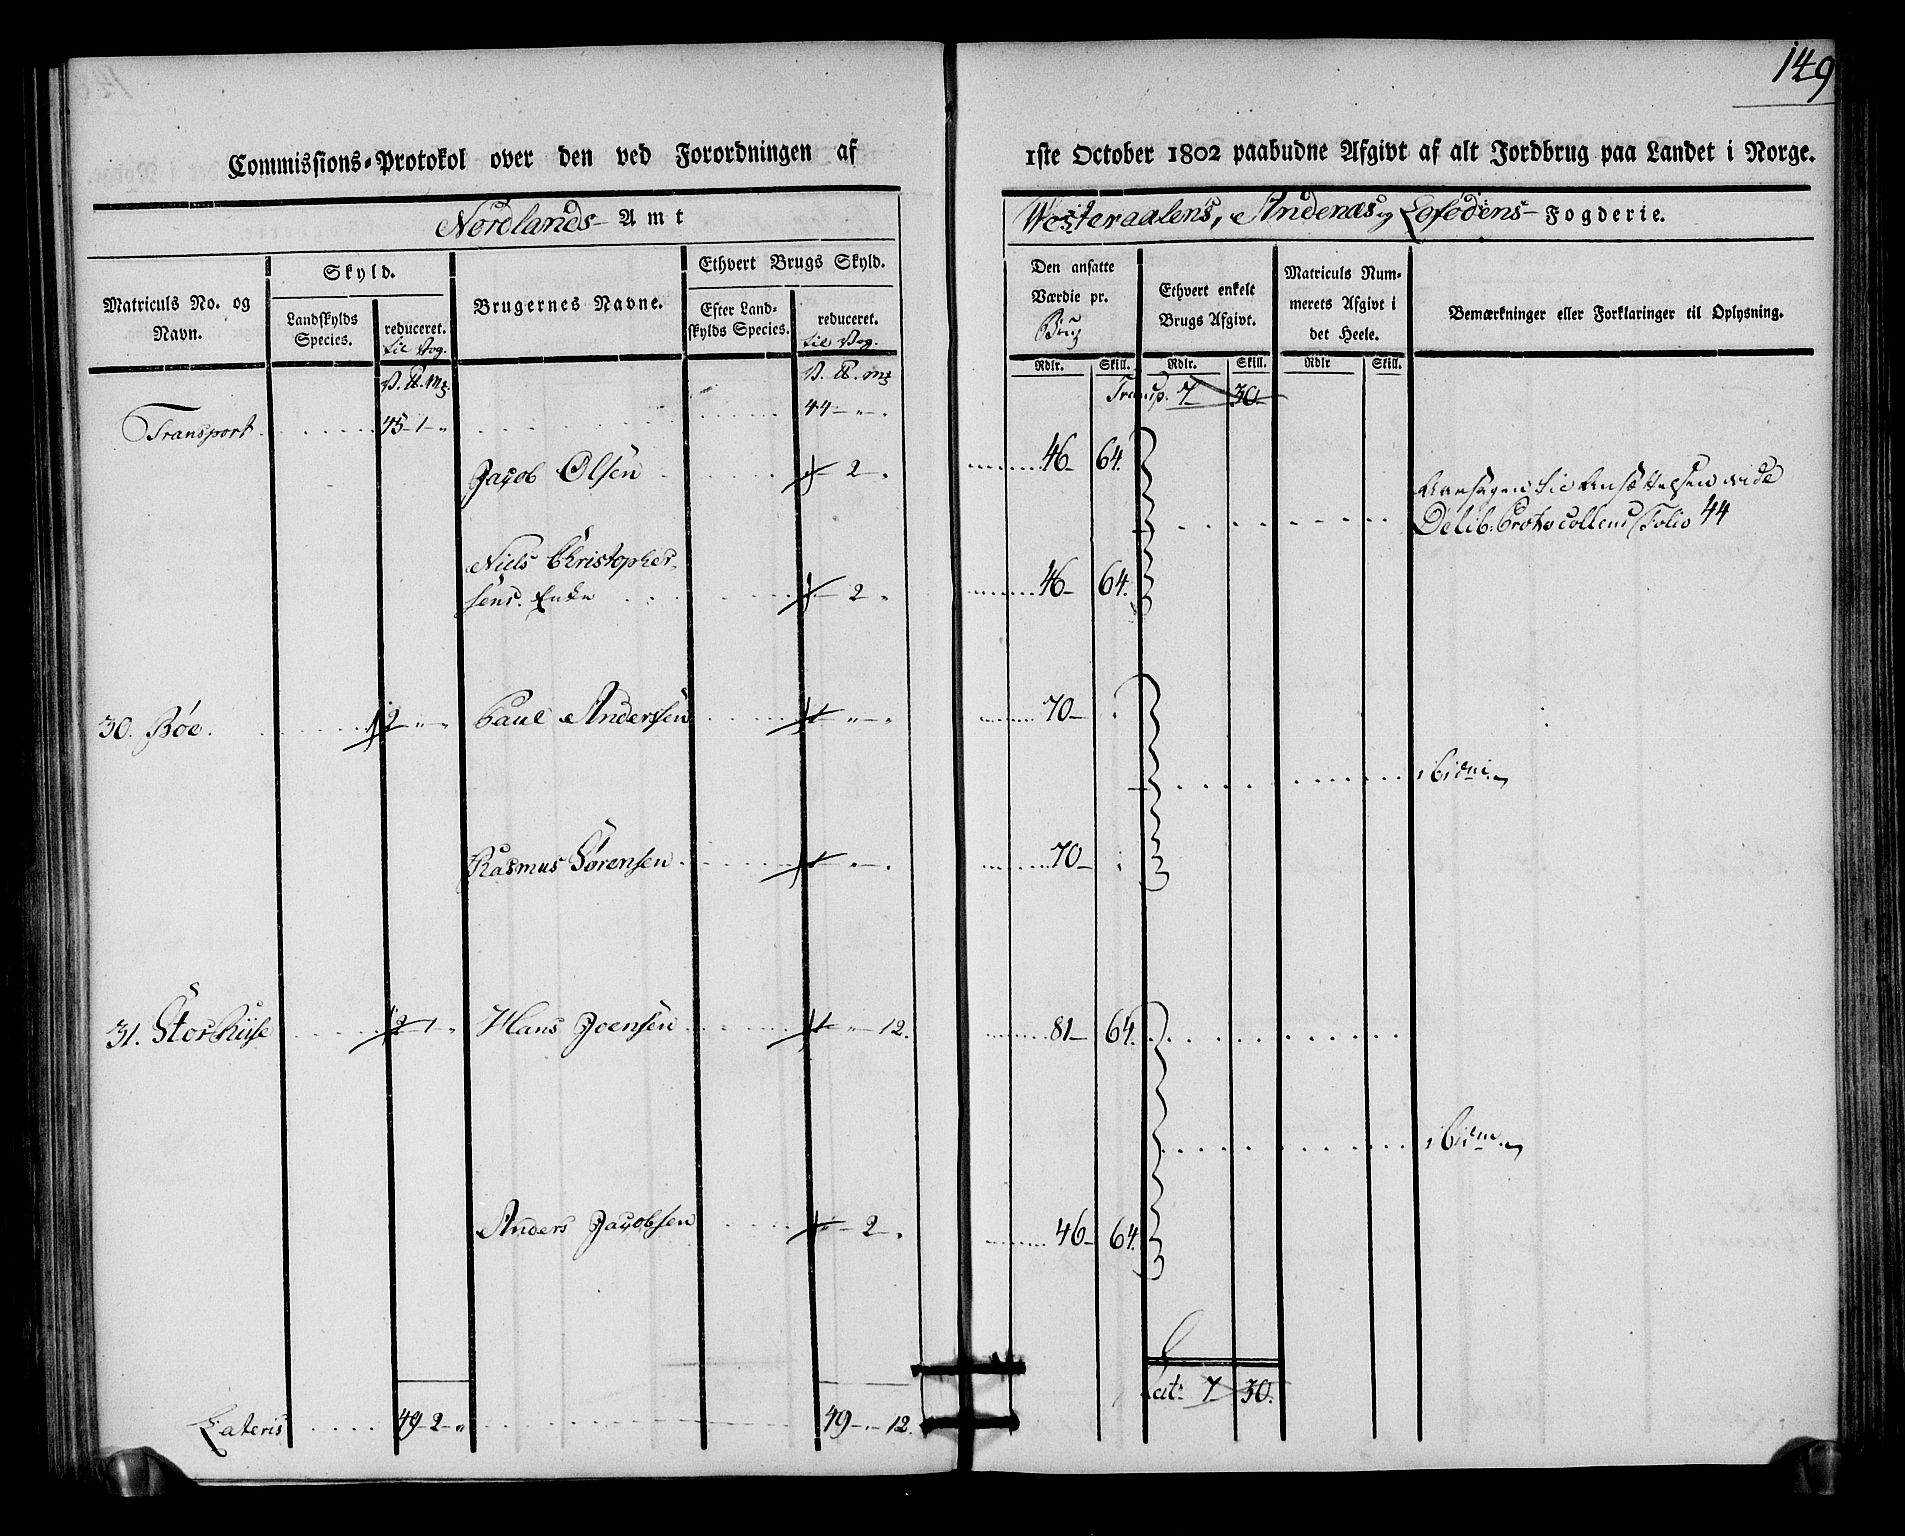 149
Commissions-Protokol over den ved Forordningen af 1ste October 1802 paabudne Afgivt af alt Jordbrug paa Landet i Norge.
Nordlands Amt
Westeraalens, Andenæs og Lofodens Fogderie.
Matriculs No. og Navn.
Skyld.
Landskylds Species.
reduceret.
til Vog.
Brugernes Navne.
Ethvert Brugs Skyld.
Efter Landskylds Species.
reduceret.
til Vog.
Den ansatte Værdie pr. Brug
Ethvert enkelt Brugs Afgivt.
Matriculs Nummerets Afgivt i det Heele.
Bemærkninger eller Forklaringer til Oplysning.
V. ℔. Mꝝ V. ℔. Mꝝ Rdlr. Skill. Rdlr. Skill. Rdlr Skill.
Transp. 7 30
Transport 45-1-" 44-"-"
Jacob Olsen 2-" 46- 64.
Aarsagen til Ansættelsen vide
Delib: Protocollens Folio 44
Niels Christopher-
sens. Enke 2 " 46- 64.
30. Bøe. 2-"-" Paul Andersen 1-"-" 70-
ibidm.
Rasmus Sørensen 1-"-" 70-
31. Storhuse 2-1-" Hans Joensen 1-"-12. 81- 64.
ibidm.
Anders Jacobsen "-2-" 46- 64.
Lat: 7 30.
Lateris 49-2-" 49-"-12.